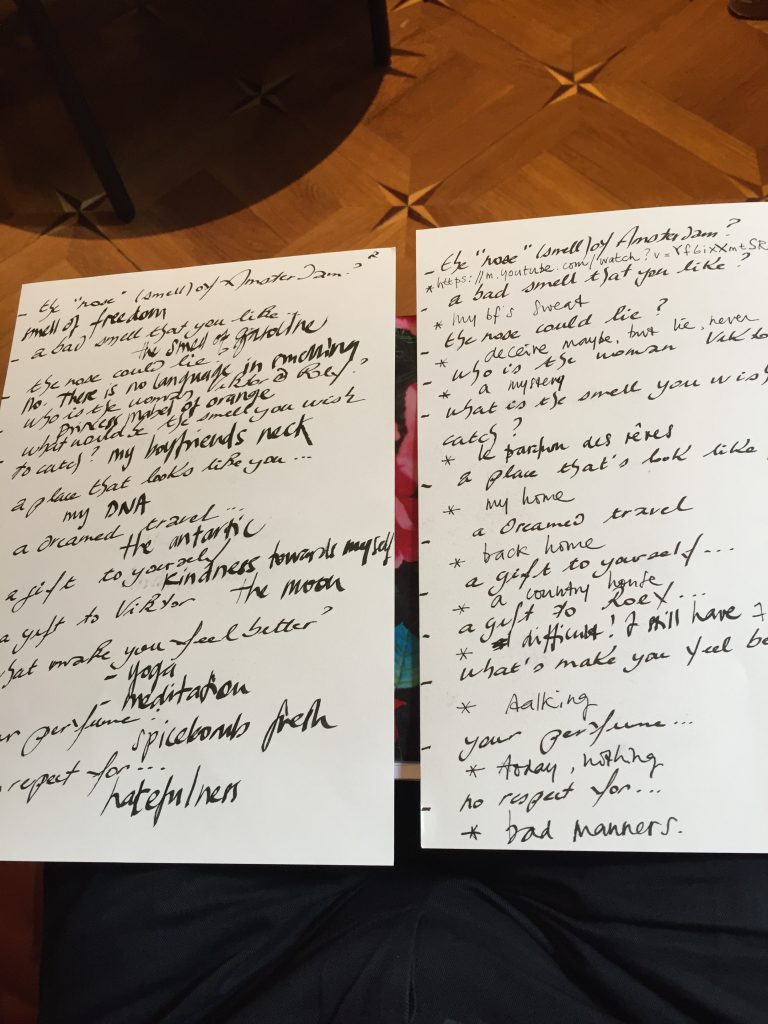 - the "nose" (smell) of Amsterdam?
smell of freedom
- a bad smell that you like
the smell of gasoline
- the nose could lie?
No. There is no language in smelling
- who is the woman Viktor @ Rolf?
princess mabel of orange
- what would be the smell you wish
to catch? my boyfriends neck
a place that looks like you...
my DNA
a dreamed travel...
the antartic
a gift to yourself
kindness towards myself
a gift to Viktor the moon
what make you feel better?
- yoga
- meditation
ur perfume...
spicebomb fresh
o respect for...
hatefulness
- the "nose" (smell) of Amsterdam?
* https://m.youtube.com/watch?v=
- a bad smell that you like?
* my bf's sweat
- the nose could lie?
* deceive maybe, but lie, never
- who is the woman Vikto
* a mystery
- what is the smell you wish
catch?
* le parfum des rêves
- a place that's look like
* my home
- a dreamed travel
* back home
- a gift to yourself...
* a country house
- a gift to Rolf...
* difficult! I still have
- what's make you feel be
* talking
- your perfume...
* today, nothing
- no respect for...
* bad manners.